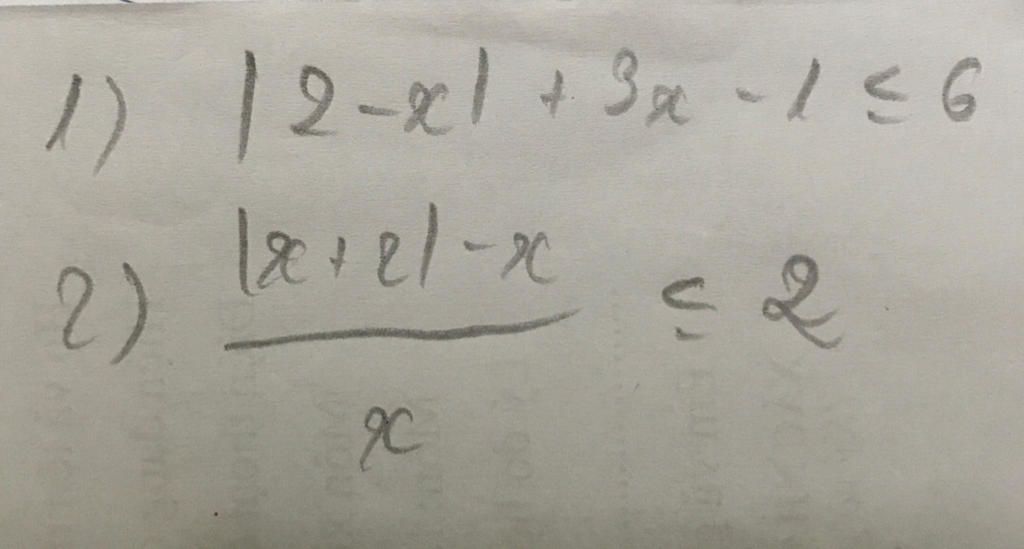 1) |2-x| + 3x - 1 ≤ 6
2) |x+2|-x / x ≤ 2